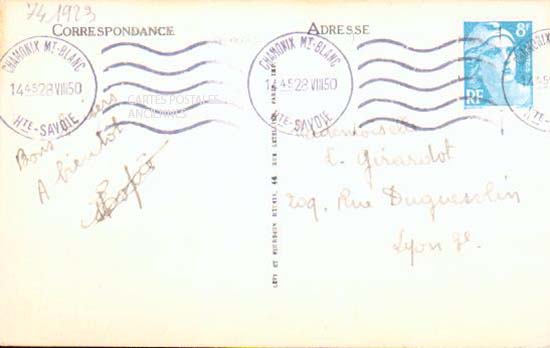 74 1923
CORRESPONDANCE
ADRESSE
CHAMONIX MT-BLANC
14 45 28 VIII 50
HTE-SAVOIE
CHAMONIX MT-BLANC
14 45 28 VIII 50
HTE-SAVOIE
CHAMONIX
8F
RF
CARTES POSTALES
ANCIENNES
Bons
A bientôt
LEVY ET NEURDEIN REUNIS, 44, RUE LETELLIER, PARIS. IMP.
Mademoiselle
C. Girardot
209, Rue Duguesclin
Lyon 3e.